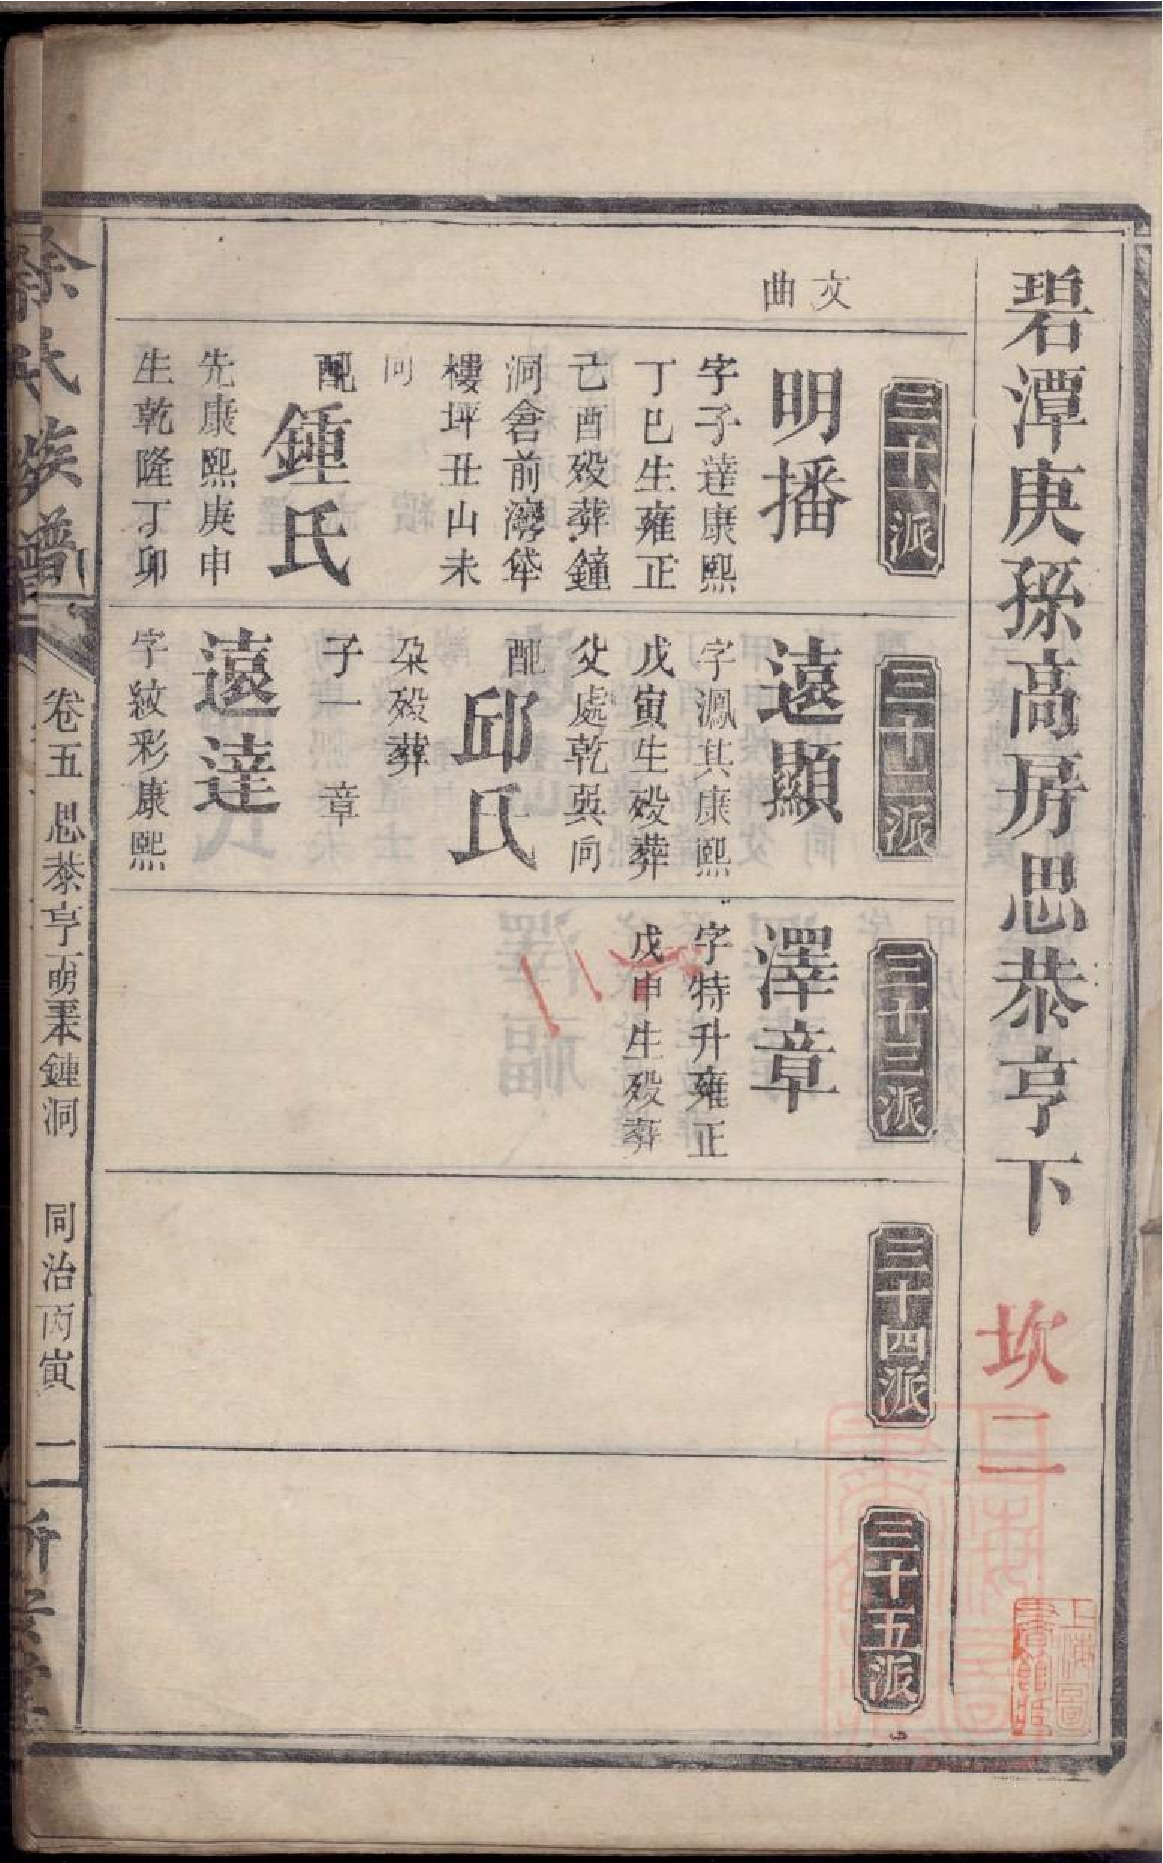 碧潭庚孫高房思恭亨下
坎二
文
曲
三十一派
明播
字子達康熙
丁巳生雍正
己酉殁葬鐘
洞倉前灣垈
樓坪丑山未
向
配
鍾氏
先康熙庚申
生乾隆丁卯
三十二派
遠顯
字鳳其康熙
戊寅生殁葬
父處乾巽向
配
邱氏
朶殁葬
子一 章
遠達
字紋彩康熙
三十三派
澤章
字特升雍正
戊申生殁葬
三十四派
三十五派
徐氏族譜
卷五 思恭亨萌秉鍾洞 同治丙寅 二
上海圖
書館藏